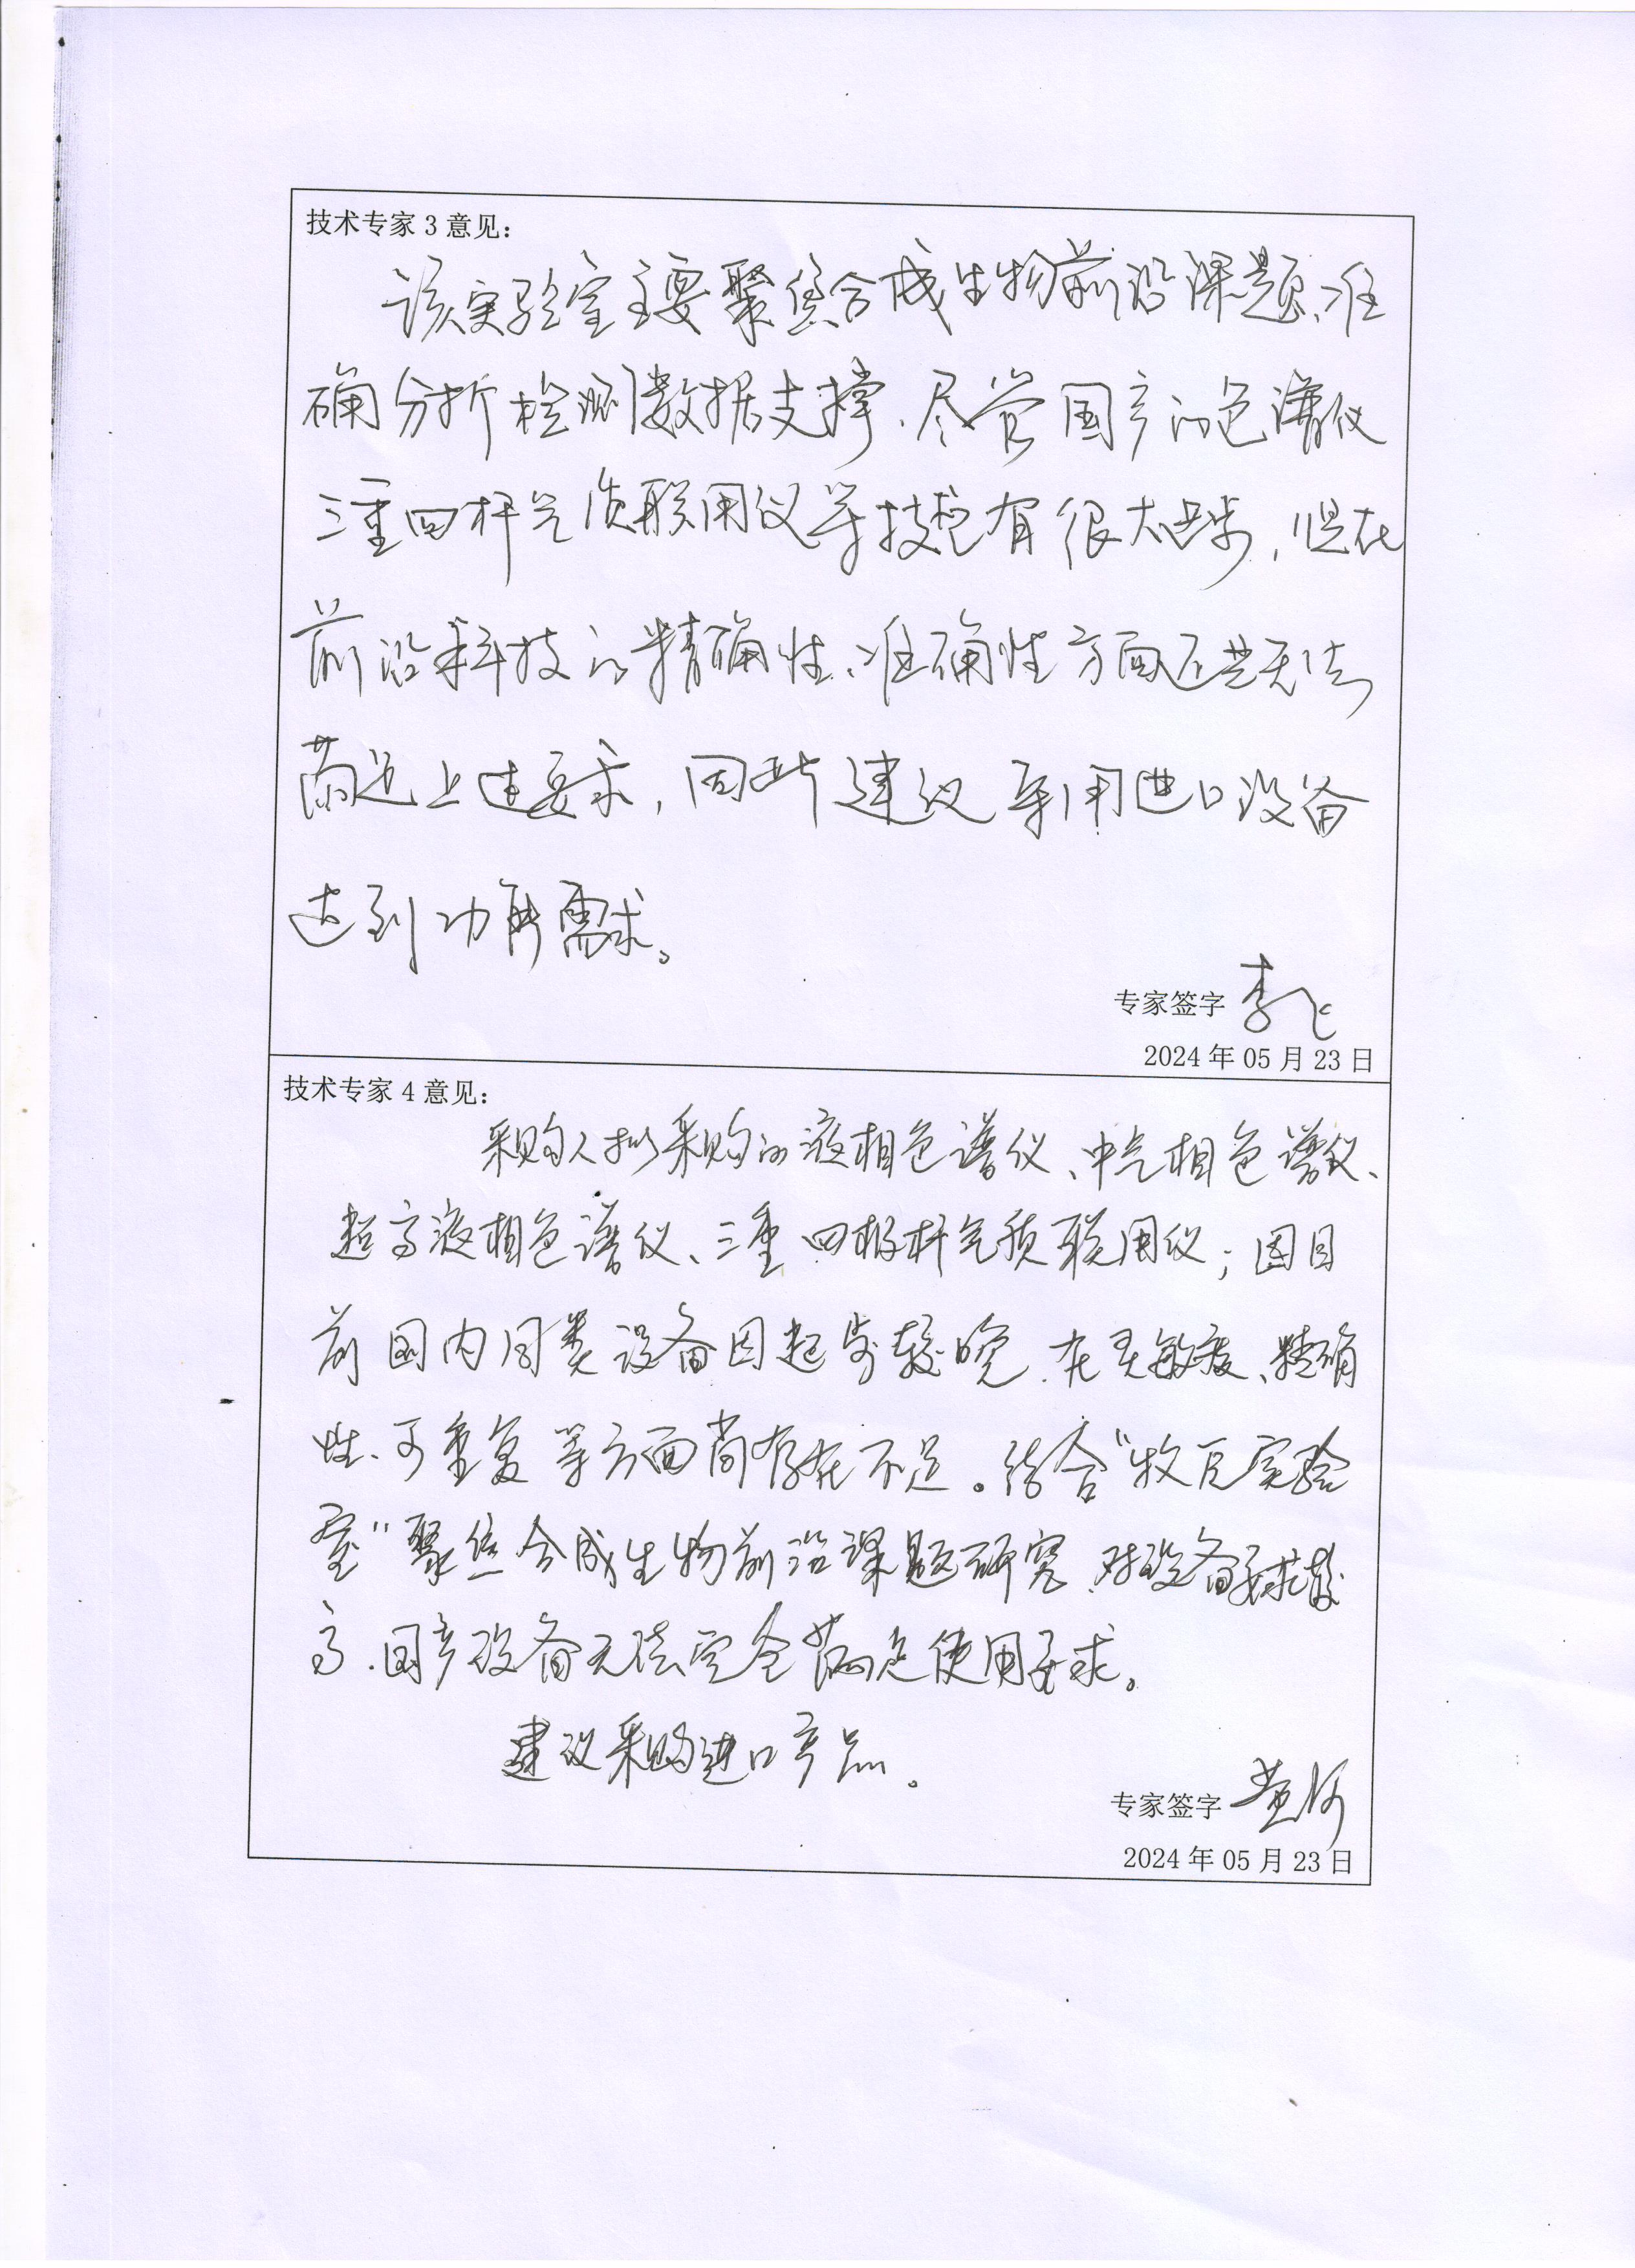 技术专家 3 意见：
该实验室主要聚焦合成生物前沿课题、准
确分析检测数据支撑.尽管国产的色谱仪
三重四杆气质联用仪等技术有很大进步，但在
前沿科技的精确性、准确性方面还是无法
满足上述要求，因此建议采用进口设备
达到功能需求。
专家签字 李飞
2024 年 05 月 23 日
技术专家 4 意见：
采购人拟采购的液相色谱仪、气相色谱仪、
超高液相色谱仪、三重四极杆气质联用仪；因目
前国内同类设备因起步较晚.在灵敏度、精确
性、可重复等方面尚存在不足。结合“牧原实验
室”聚焦合成生物前沿课题研究.对设备要求较
高.国产设备无法完全满足使用要求。
建议采购进口产品。
专家签字 黄河
2024 年 05 月 23 日